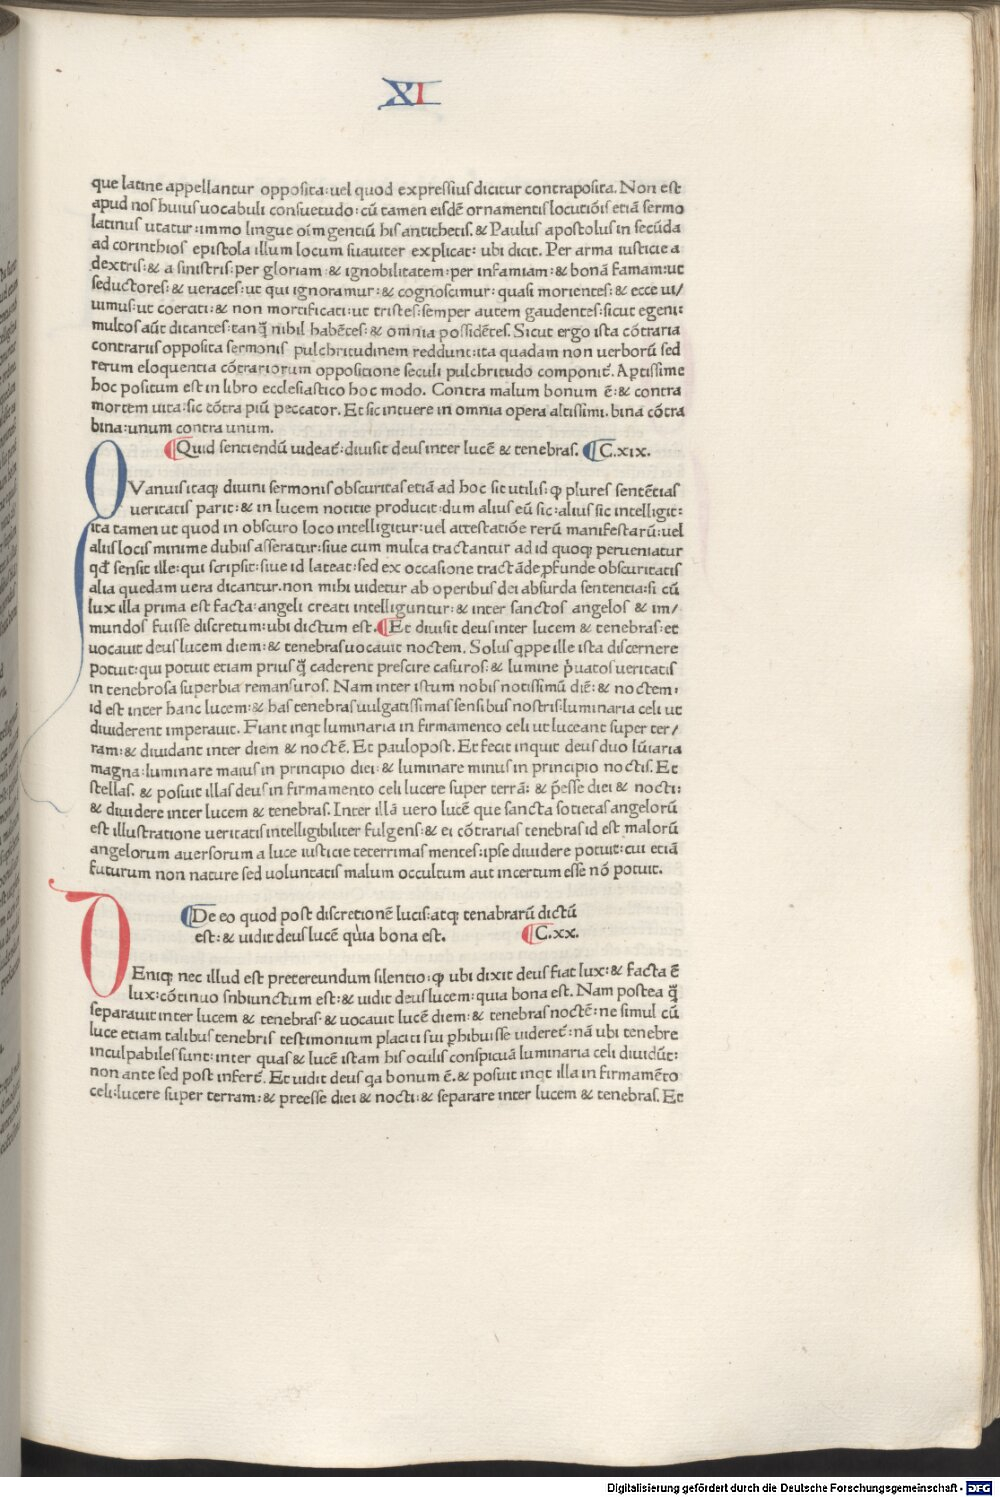 XI
que latine appellantur opposita: uel quod expressius dicitur contraposita. Non est
apud nos huius uocabuli consuetudo: cū tamen eisdē ornamentis locutiōis etiā sermo
latinus utatur: immo lingue oīm gentiū his antithetis. & Paulus apostolus in secūda
ad corinthios epistola illum locum suauiter explicat: ubi dicit. Per arma iusticie a
dextris: & a sinistris: per gloriam & ignobilitatem: per infamiam: & bonā famam: ut
seductores: & ueraces: ut qui ignoramur: & cognoscimur: quasi morientes: & ecce ui/
uimus: ut coerciti: & non mortificati: ut tristes: semper autem gaudentes: sicut egeni:
multos aūt ditantes: tanq̄ nihil habētes: & omnia possidētes. Sicut ergo ista cōtraria
contrariis opposita sermonis pulchritudinem reddunt: ita quadam non uerborū sed
rerum eloquentia cōtrariorum oppositione seculi pulchritudo componit᷑. Aptissime
hoc positum est in libro ecclesiastico hoc modo. Contra malum bonum ē: & contra
mortem uita: sic cōtra piū peccator. Et sic intuere in omnia opera altissimi. bina cōtra
bina: unum contra unum.
¶Quid sentiendū uideat᷑: diuisit deus inter lucē & tenebras. ¶C.xix.
QVanuis itaq; diuini sermonis obscuritas etiā ad hoc sit utilis: ꝙ plures sentētias
ueritatis parit: & in lucem notitie producit: dum alius eū sic: alius sic intelligit:
ita tamen ut quod in obscuro loco intelligitur: uel attestatiōe rerū manifestarū: uel
aliis locis minime dubiis asseratur: siue cum multa tractantur ad id quoq; perueniatur
qđ sensit ille: qui scripsit: siue id lateat: sed ex occasione tractāde ꝓfunde obscuritatis
alia quedam uera dicantur. non mihi uidetur ab operibus dei absurda sententia: si cū
lux illa prima est facta: angeli creati intelliguntur: & inter sanctos angelos & im/
mundos fuisse discretum: ubi dictum est. ¶Et diuisit deus inter lucem & tenebras: et
uocauit deus lucem diem: & tenebras uocauit noctem. Solus q̇ppe ille ista discernere
potuit: qui potuit etiam prius q̄ caderent prescire casuros: & lumine p̄uatos ueritatis
in tenebrosa superbia remansuros. Nam inter istum nobis notissimū diē: & noctem:
id est inter hanc lucem: & has tenebras uulgatissimas sensibus nostris: luminaria celi ut
diuiderent imperauit. Fiant inqt luminaria in firmamento celi ut luceant super ter/
ram: & diuidant inter diem & noctē. Et paulopost. Et fecit inquit deus duo lūiaria
magna: luminare maius in principio diei: & luminare minus in principio noctis. Et
stellas. & posuit illas deus in firmamento celi lucere super terrā: & p̄esse diei & nocti:
& diuidere inter lucem & tenebras. Inter illā uero lucē que sancta societas angelorū
est illustratione ueritatis intelligibiliter fulgens: & ei cōtrarias tenebras id est malorū
angelorum auersorum a luce iusticie teterrimas mentes: ipse diuidere potuit: cui etiā
futurum non nature sed uoluntatis malum occultum aut incertum esse nō potuit.
¶De eo quod post discretionē lucis: atq; tenabrarū dictū
est: & uidit deus lucē quia bona est. ¶C.xx.
DEniq; nec illud est pretereundum silentio: ꝙ ubi dixit deus fiat lux: & facta ē
lux: cōtinuo snbiunctum est: & uidit deus lucem: quia bona est. Nam postea q̄
separauit inter lucem & tenebras: & uocauit lucē diem: & tenebras noctē: ne simul cū
luce etiam talibus tenebris testimonium placiti sui ꝑhibuisse uideret᷑: nā ubi tenebre
inculpabiles sunt: inter quas & lucē istam his oculis conspicuā luminaria celi diuidūt:
non ante sed post infert᷑. Et uidit deus qa bonum ē. & posuit inqt illa in firmamēto
celi: lucere super terram: & preesse diei & nocti: & separare inter lucem & tenebras. Et
Digitalisierung gefördert durch die Deutsche Forschungsgemeinschaft - DFG